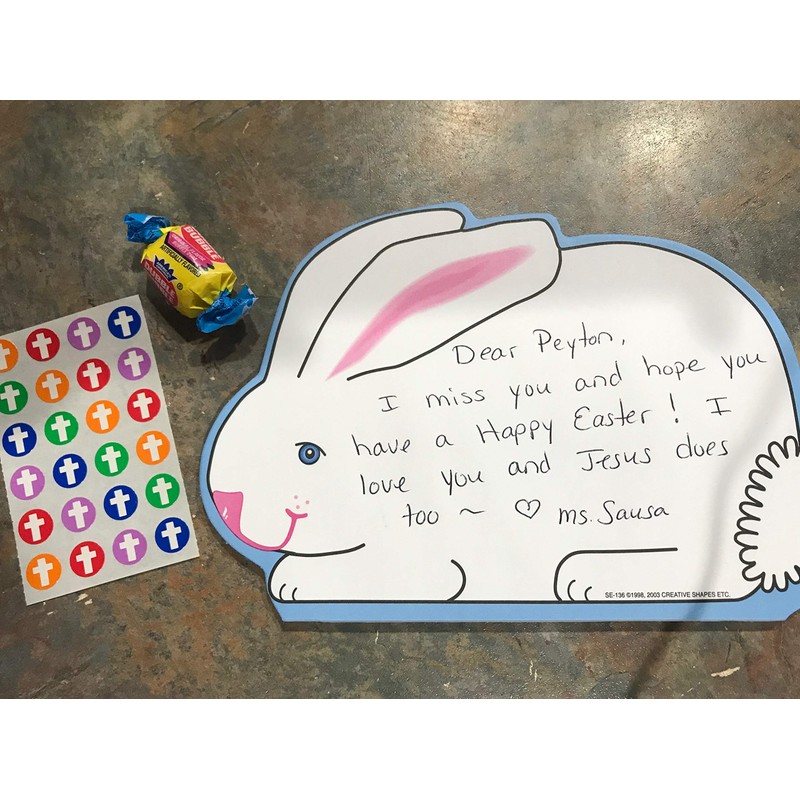 DUBBLE
BUBBLE
ARTIFICIALLY FLAVORED
DUBBLE
Dear Peyton,
I miss you and hope you
have a Happy Easter! I
love you and Jesus does
too ~ ♡ ms. Sausa
SE-136 ©1998, 2003 CREATIVE SHAPES ETC.